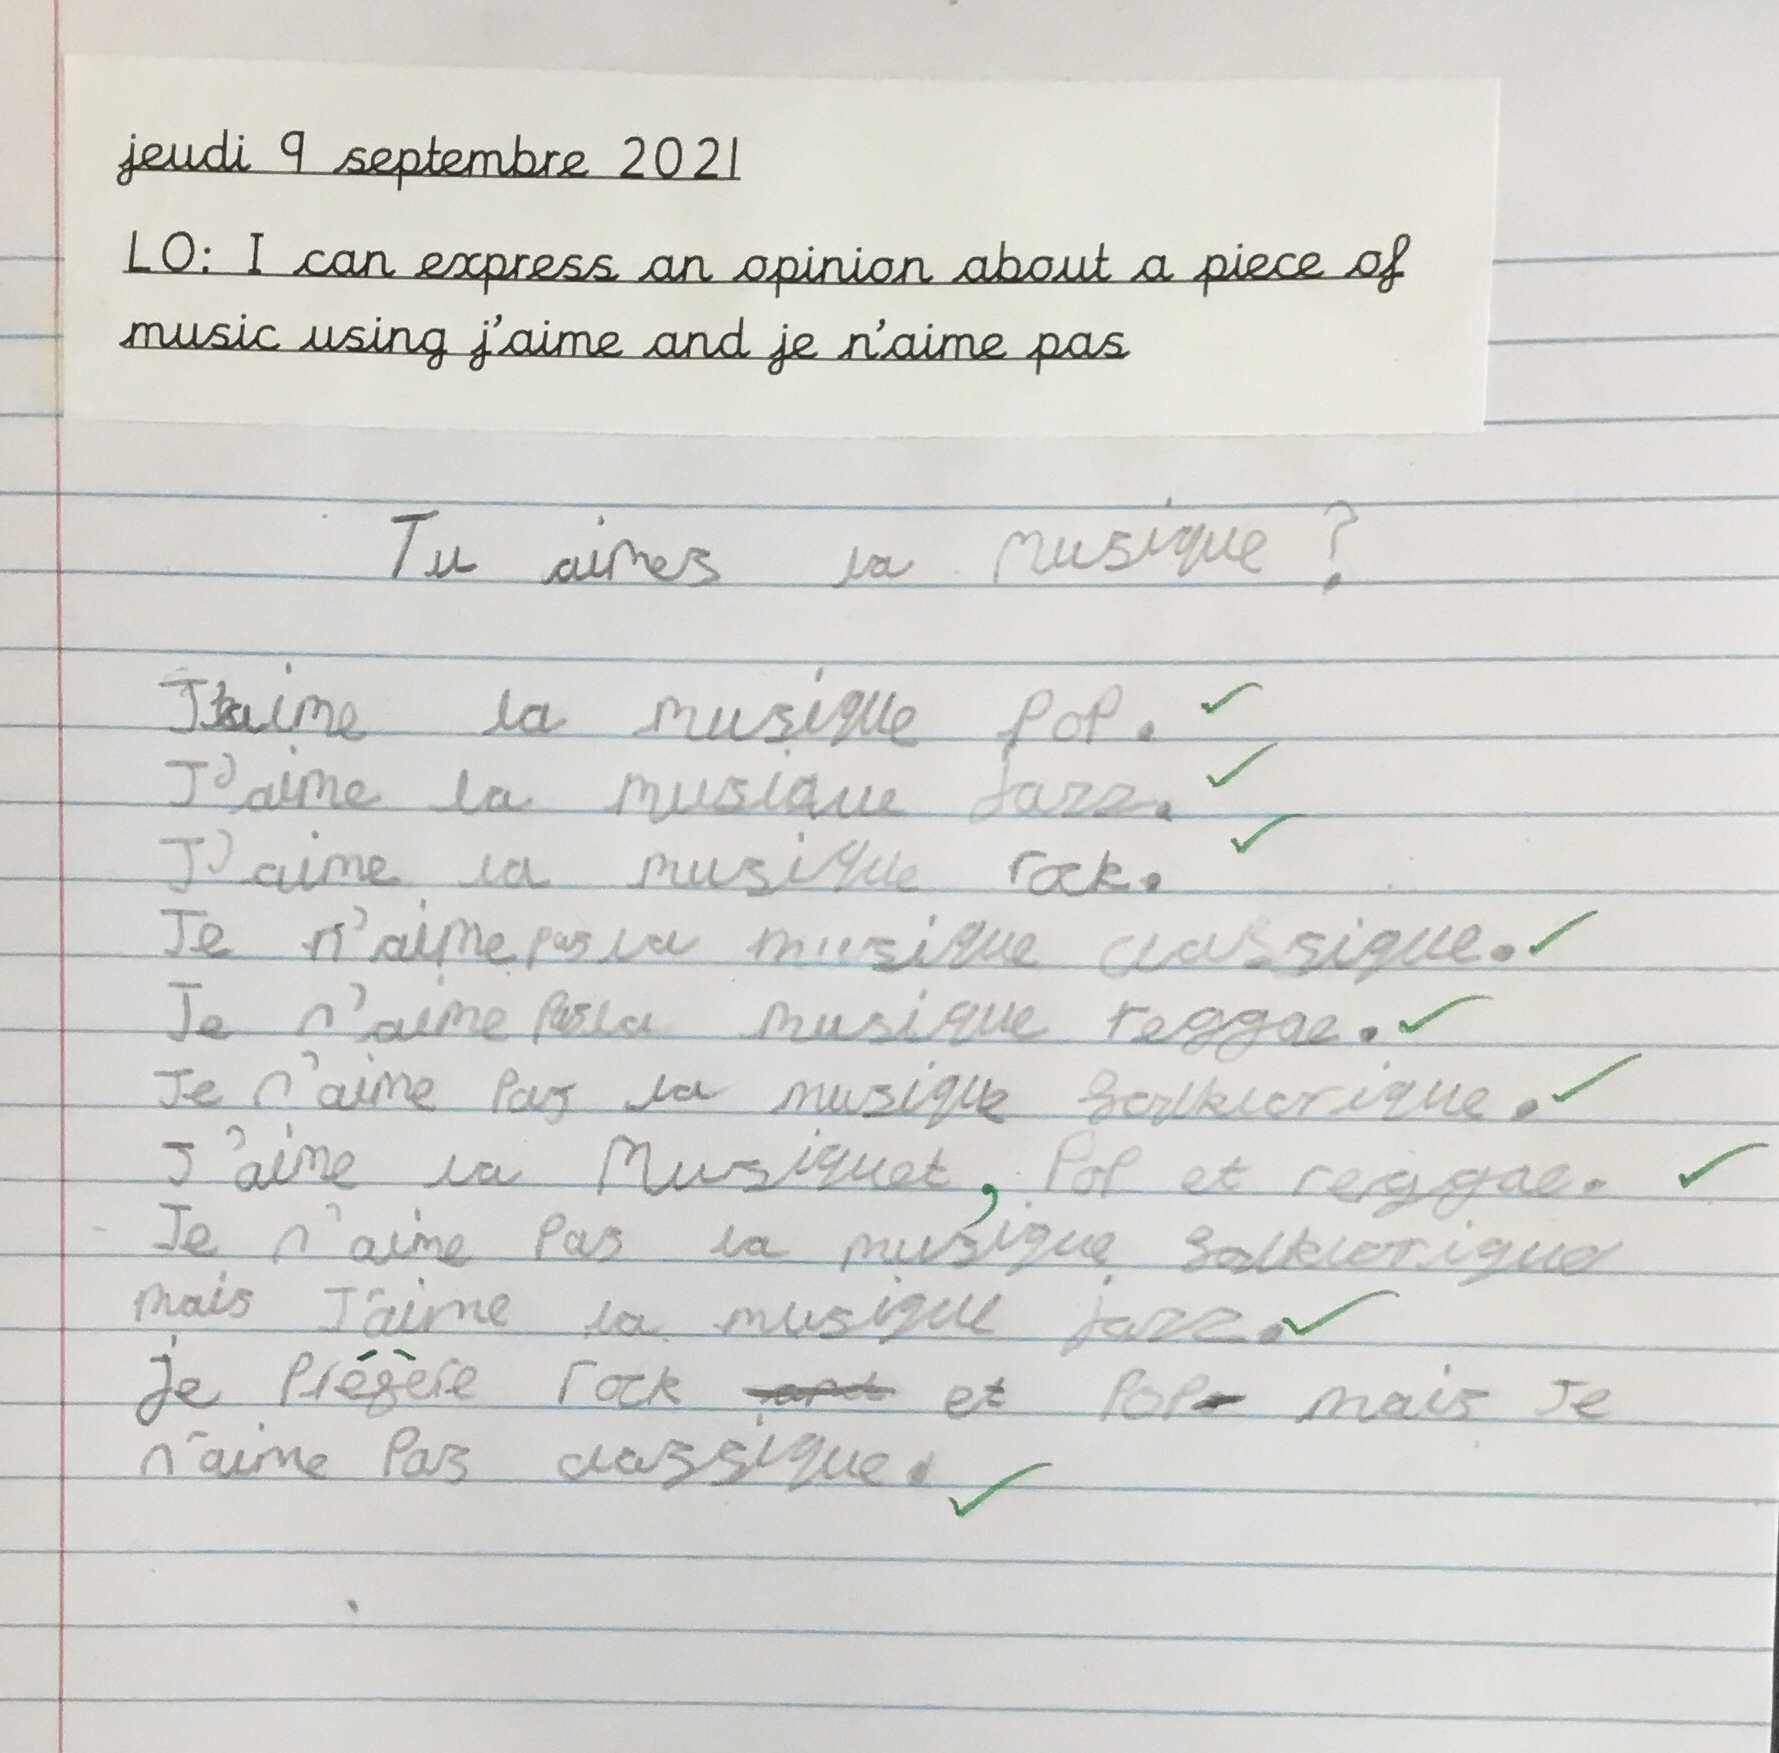 jeudi 9 septembre 2021
LO: I can express an opinion about a piece of
music using j'aime and je n'aime pas
Tu aimes la musique ?
J'aime la musique pop.
J'aime la musique jazz.
J'aime la musique rock.
Je n'aime pas la musique classique.
Je n'aime pas la musique reggae.
Je n'aime pas la musique folklorique.
J'aime la Musiquet, Pop et rerggae.
Je n'aime pas la musique folklorique
mais J'aime la musique jazz.
je Préfère rock and et Pop mais Je
n'aime Pas classique.